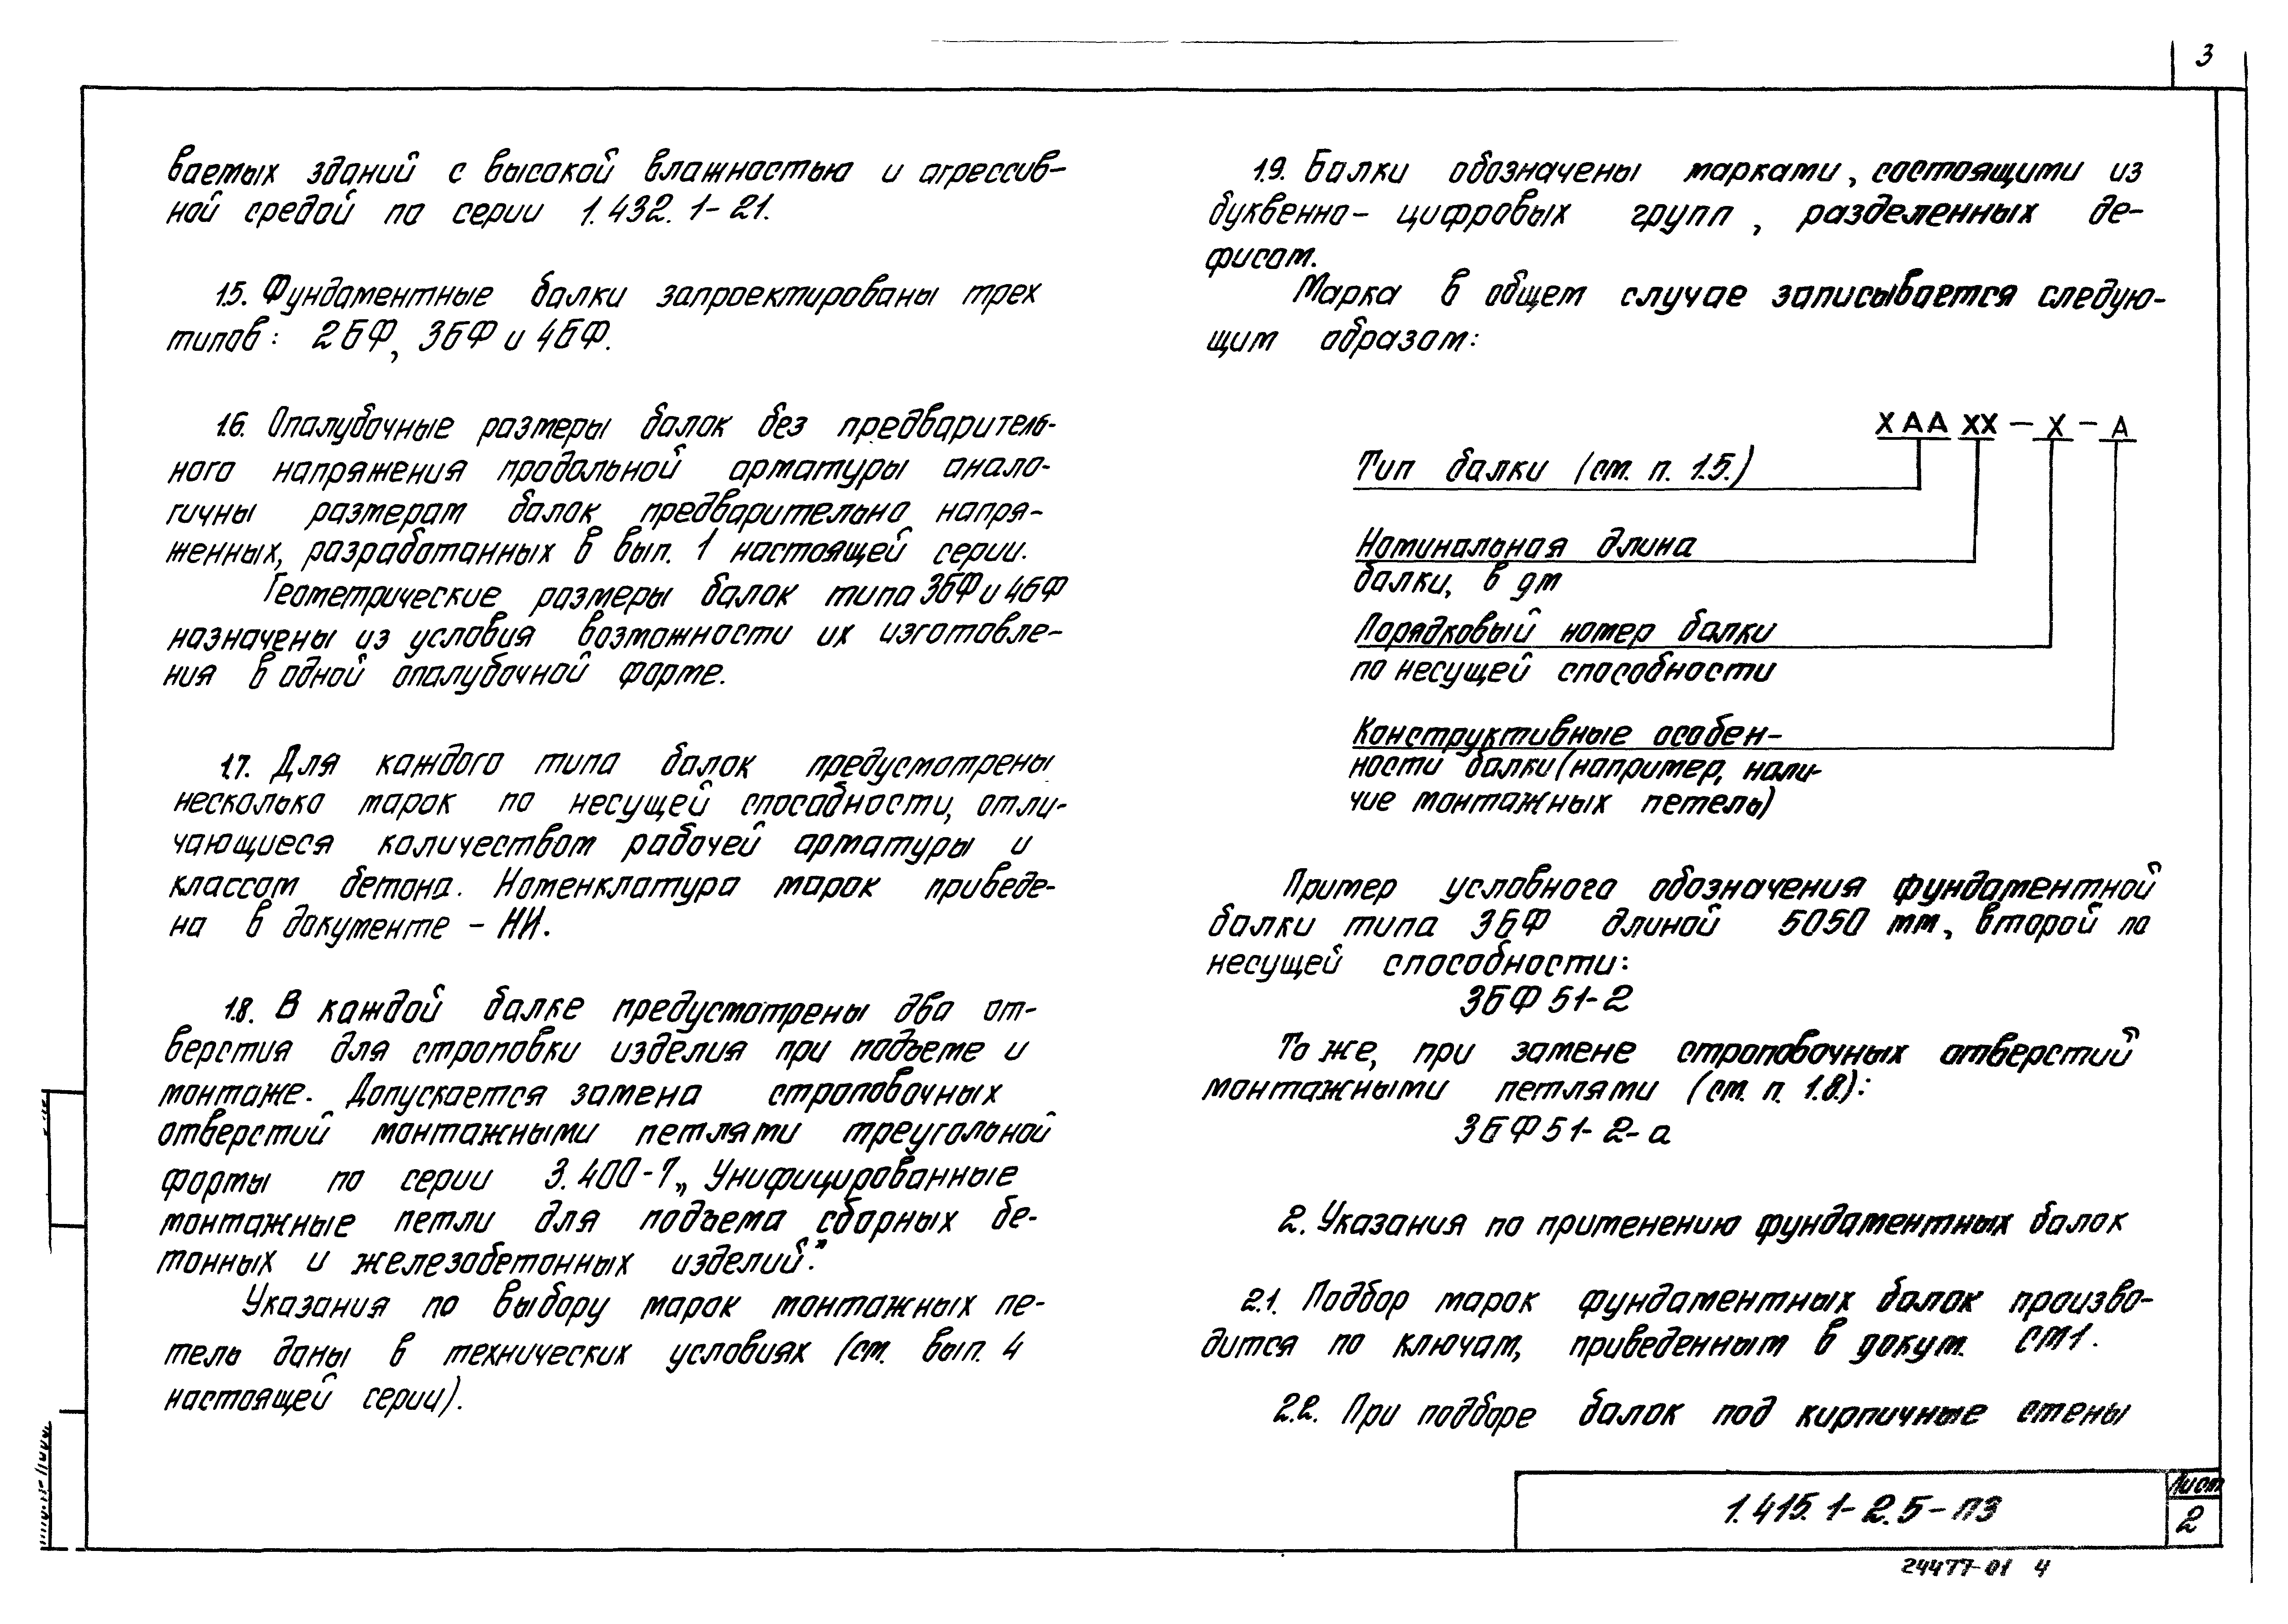 3
ваемых зданий с высокой влажностью и агрессив-
ной средой по серии 1.432.1-21.
1.5. Фундаментные балки запроектированы трех
типов: 2БФ, 3БФ и 4БФ.
1.6. Опалубочные размеры балок без предваритель-
ного напряжения продольной арматуры анало-
гичны размерам балок предварительно напря-
женных, разработанных в вып. 1 настоящей серии.
Геометрические размеры балок типа 3БФ и 4БФ
назначены из условия возможности их изготовле-
ния в одной опалубочной форме.
1.7. Для каждого типа балок предусмотрены
несколько марок по несущей способности, отли-
чающиеся количеством рабочей арматуры и
классом бетона. Номенклатура марок приведе-
на в документе - НИ.
1.8. В каждой балке предусмотрены два от-
верстия для строповки изделия при подъеме и
монтаже. Допускается замена строповочных
отверстий монтажными петлями треугольной
формы по серии 3.400-7 „Унифицированные
монтажные петли для подъема сборных бе-
тонных и железобетонных изделий".
Указания по выбору марок монтажных пе-
тель даны в технических условиях (см. вып. 4
настоящей серии).
1.9. Балки обозначены марками, состоящими из
буквенно- цифровых групп, разделенных де-
фисом.
Марка в общем случае записывается следую-
щим образом:
ХАА ХХ - Х - А
Тип балки (см. п. 1.5.)
Номинальная длина
балки, в дм
Порядковый номер балки
по несущей способности
Конструктивные особен-
ности балки (например, нали-
чие монтажных петель)
Пример условного обозначения фундаментной
балки типа 3БФ длиной 5050 мм, второй по
несущей способности:
3БФ 51-2
То же, при замене строповочных отверстий
монтажными петлями (см. п. 1.8.):
3БФ 51-2-а
2. Указания по применению фундаментных балок
2.1. Подбор марок фундаментных балок произво-
дится по ключам, приведенным в докум. СМ1.
2.2. При подборе балок под кирпичные стены
1.415.1-2.5-ПЗ
Лист
2
24477-01 4